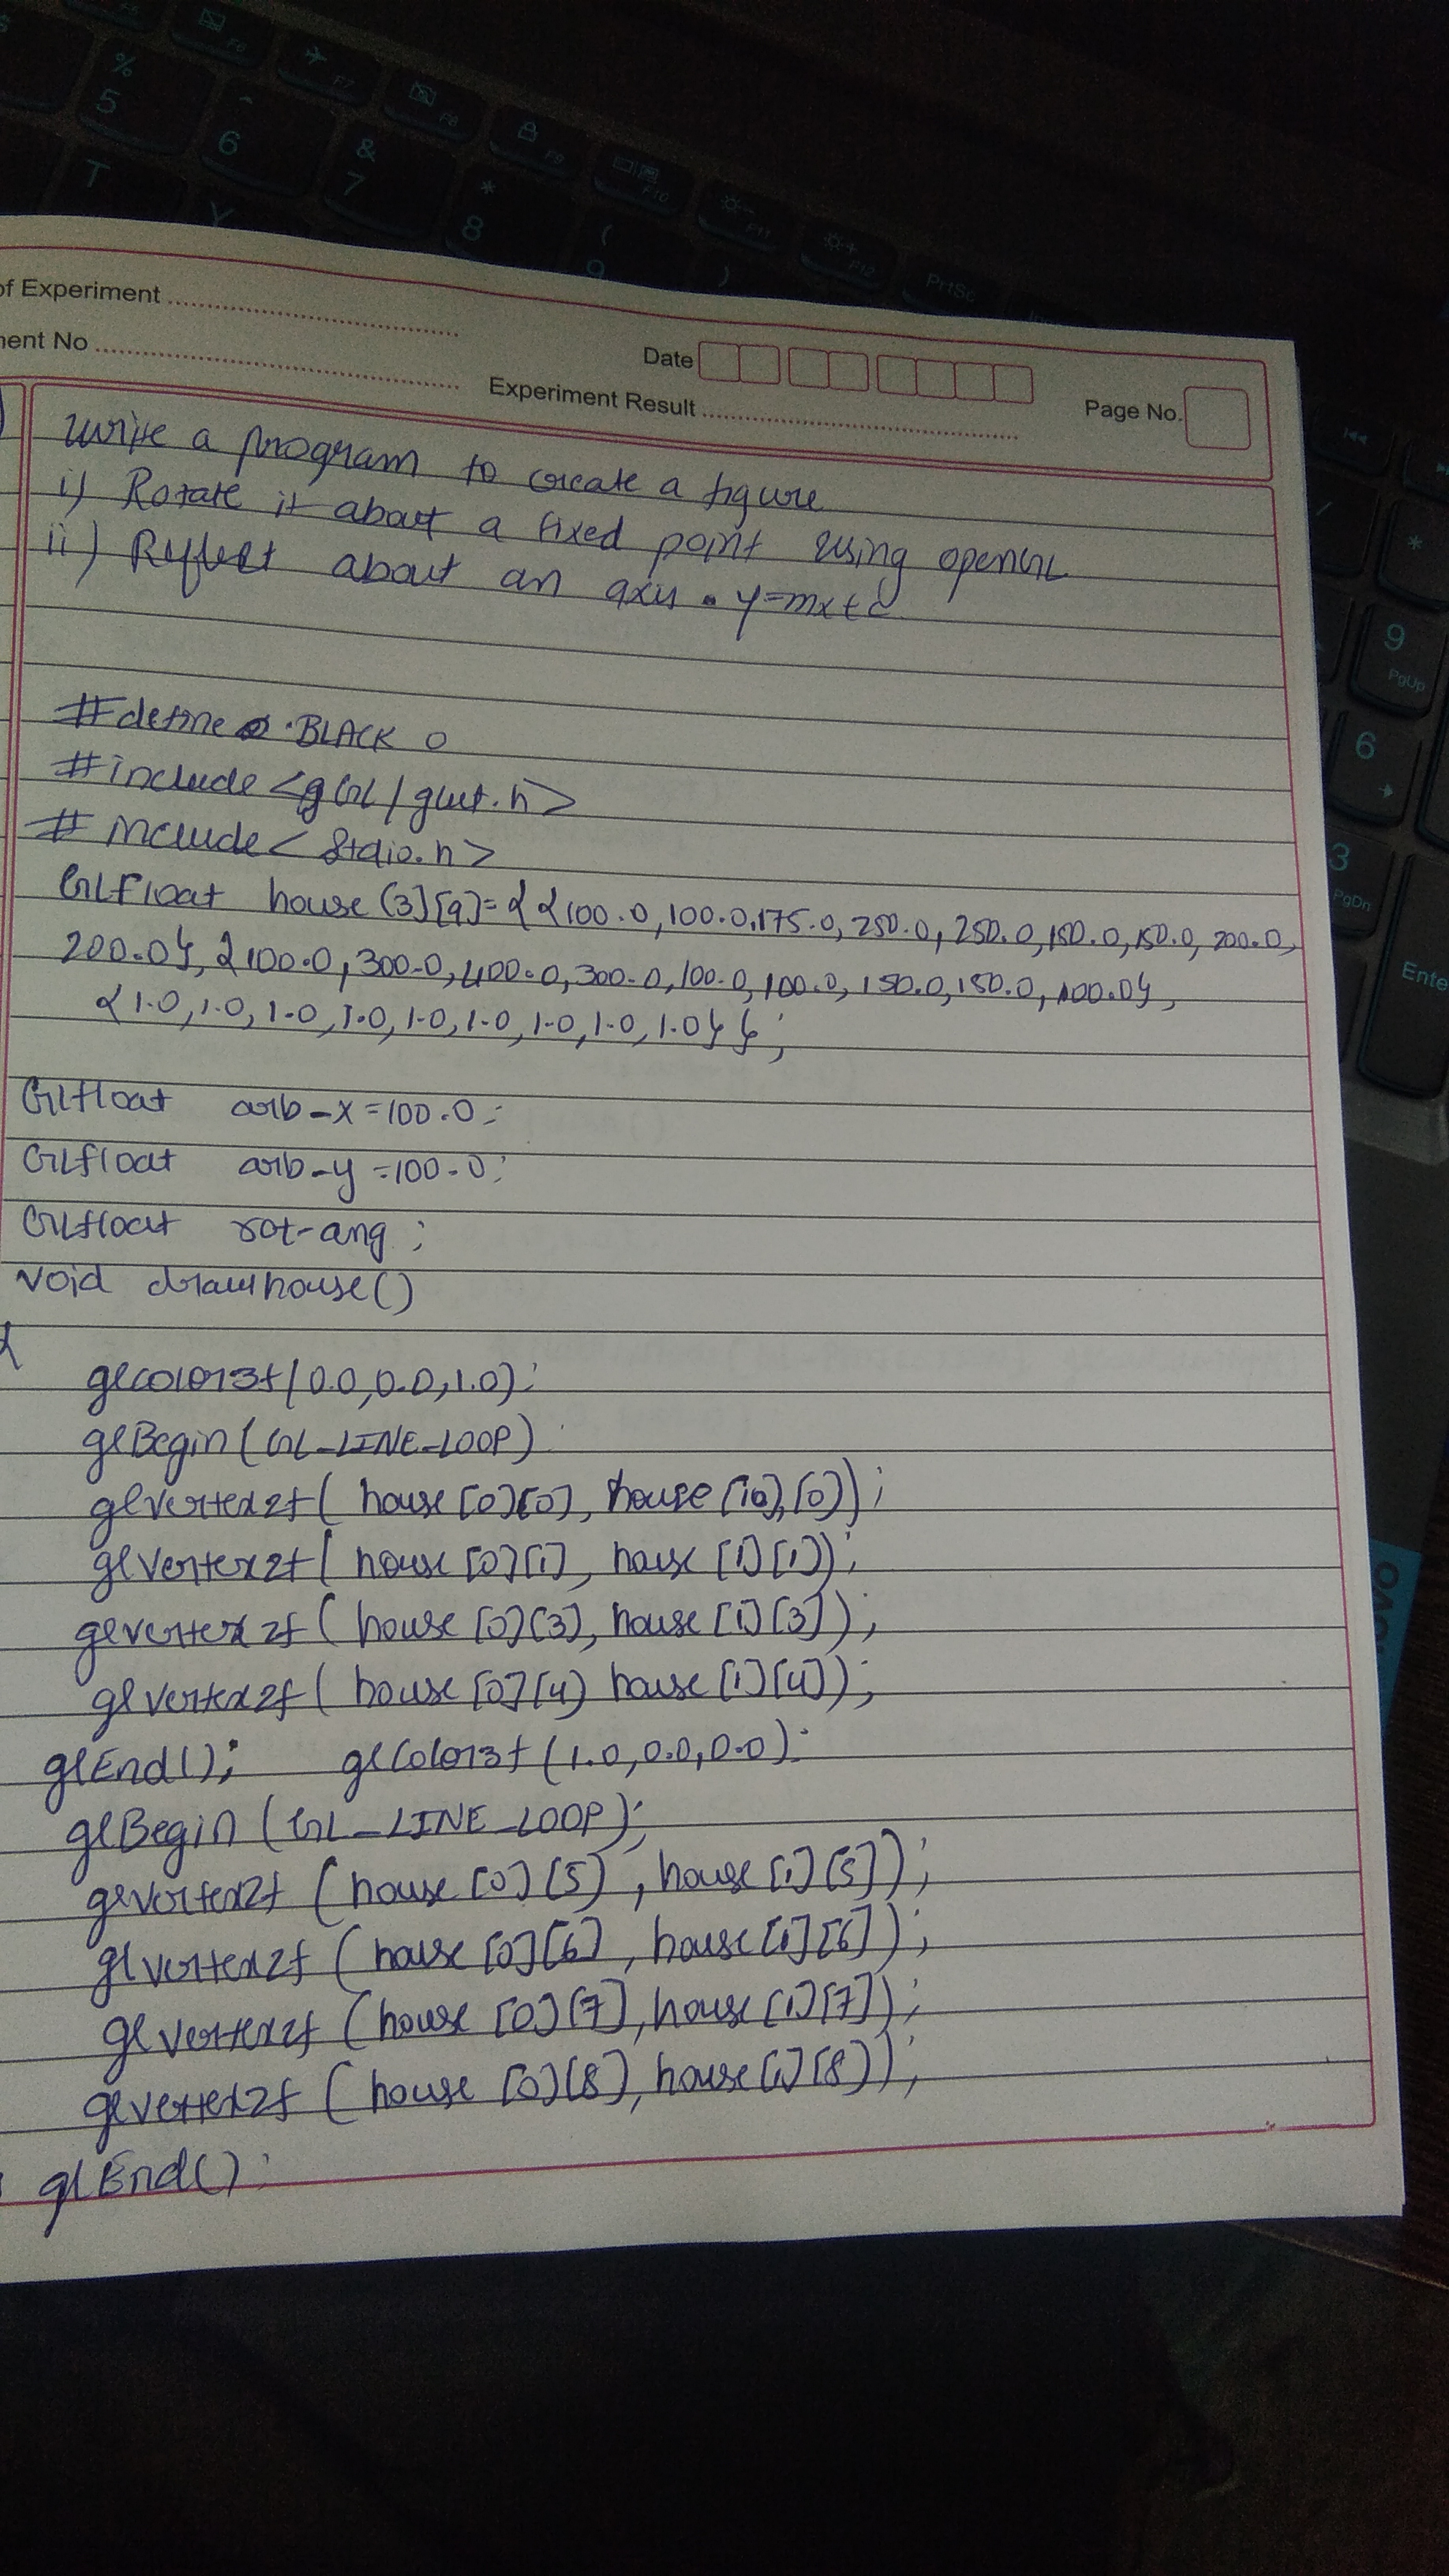 %
5
^
6
&
7
*
8
(
9
)
T
Y
F6
F7
F8
F9
F10
F11
F12
PrtSc
of Experiment
ment No
Date
Experiment Result
Page No.
Write a program to create a figure
i) Rotate it about a fixed point using openGL
ii) Reflect about an axis y=mx+c
#define BLACK 0
#include <gGL/glut.h>
#include < stdio.h>
GLfloat house [3][9]={{100.0,100.0,175.0,250.0,250.0,150.0,150.0,200.0,
200.0},{100.0,300.0,400.0,300.0,100.0,100.0,150.0,150.0,100.0},
{1.0,1.0,1.0,1.0,1.0,1.0,1.0,1.0,1.0}};
GLfloat arb-x=100.0;
GLfloat arb-y=100.0;
GLfloat rot-ang;
void drawhouse()
{
glcolor3f(0.0,0.0,1.0);
glBegin(GL_LINE_LOOP)
glvertex2f( house [0][0], house [10],[0]);
glvertex2f( house [0][1], house [1][1]);
glvertex2f( house [0][3], house [1][3]);
glvertex2f( house [0][4) house [1][4]);
glEnd(); glColor3f(1.0,0.0,0.0);
glBegin (GL_LINE_LOOP);
glvertex2f (house [0][5], house[1][5]);
glvertex2f (house [0][6], house[1][6]);
glvertex2f (house [0][7], house[1][7]);
glvertex2f (house [0][8], house[1][8]);
glEnd();
*
9
PgUp
6
3
PgDn
Enter